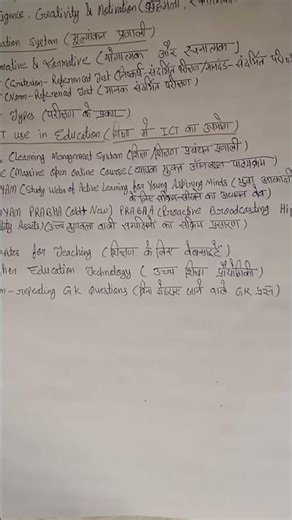 igence, Creativity & Motivation (बुद्धिमत्ता,
ation System (मूल्यांकन प्रणाली)
mative & Formative (योगात्मक और रचनात्मक)
(Criterion-Referenced Test (निकष-संदर्भित परीक्षण/मानदंड-संदर्भित परी
(Norm-Referenced Test (मानक संदर्भित परीक्षण)
Types (परीक्षण के प्रकार)
T use in Education (शिक्षा में ICT का उपयोग)
(Learning Management System (शिक्षा/शिक्षण प्रबंधन प्रणाली)
C (Massive open online Course) (व्यापक मुक्त ऑनलाइन पाठ्यक्रम)
YAM (Study Webs of Active Learning for Young Aspiring Minds (युवा आकांक्षी
के लिए सक्रिय-सीखने का अध्ययन वेब)
YAM PRABHA (old+New) PRABHA (Proactive Broadcasting Hi
lity Assets) (उच्च गुणवत्ता वाली का सक्रिय प्रसारण)
ites for Teaching (शिक्षण के लिए वेबसाइटें)
her Education Technology (उच्च शिक्षा प्रौद्योगिकी)
n-repeating GK Questions (बिना दोहराए जाने वाले GK प्रश्न)